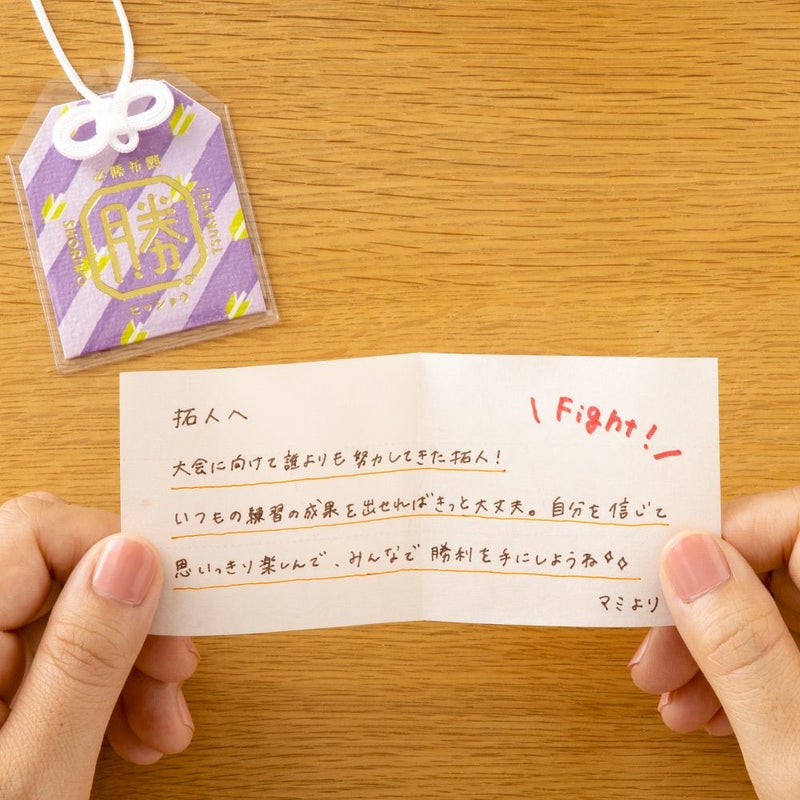 必勝祈願
勝
SHORI NO
TSUKAMI!
ヒッショウ
拓人へ
\ Fight! /
大会に向けて誰よりも努力してきた拓人!
いつもの練習の成果を出せればきっと大丈夫。自分を信じて
思いっきり楽しんで、みんなで勝利を手にしようね
マミより